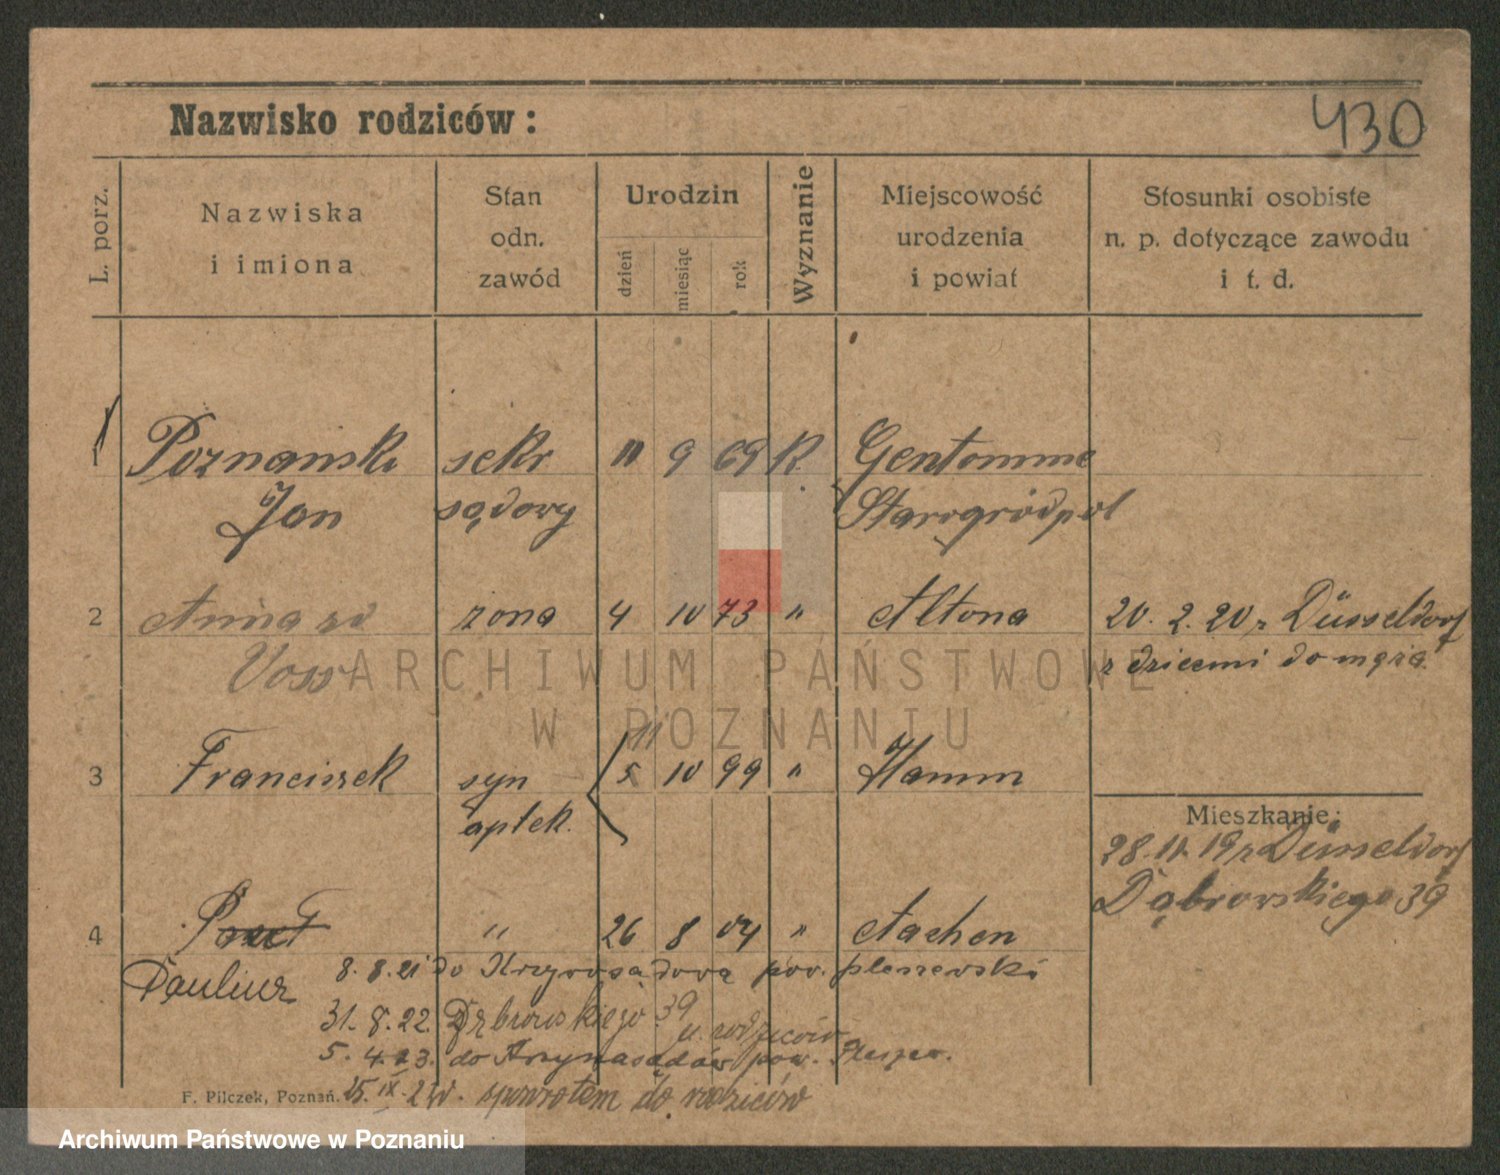 430
Nazwisko rodziców:
L. porz.
Nazwiska
i imiona
Stan
odn.
zawód
Urodzin
dzień
miesiąc
rok
Wyznanie
Miejscowość
urodzenia
i powiat
Stosunki osobiste
n. p. dotyczące zawodu
i t. d.
1 Poznanski sekr 11 9 69 K. Gentomme
Jan sądowy Starogródpol
2 Anna zd żona 4 10 73 " Altona 20. 2. 20 z Düsseldorf
Voss z dziecmi do męża
11
3 Franciszek syn 5 10 99 " Hamm
aptek.
Mieszkanie:
28. 11. 19 z Düsseldorf
Dąbrowskiego 39
4 " 26 8 04 " Aachen
Paulina 8. 8. 21 do pow. pleszewski
31. 8. 22. Dąbrowskiego 39
u rodziców
5. 4. 23. do pow. Pleszew.
15. IX. spowrotem do rodziców
F. Pilczek, Poznań.
ARCHIWUM PAŃSTWOWE
W POZNANIU
Archiwum Państwowe w Poznaniu